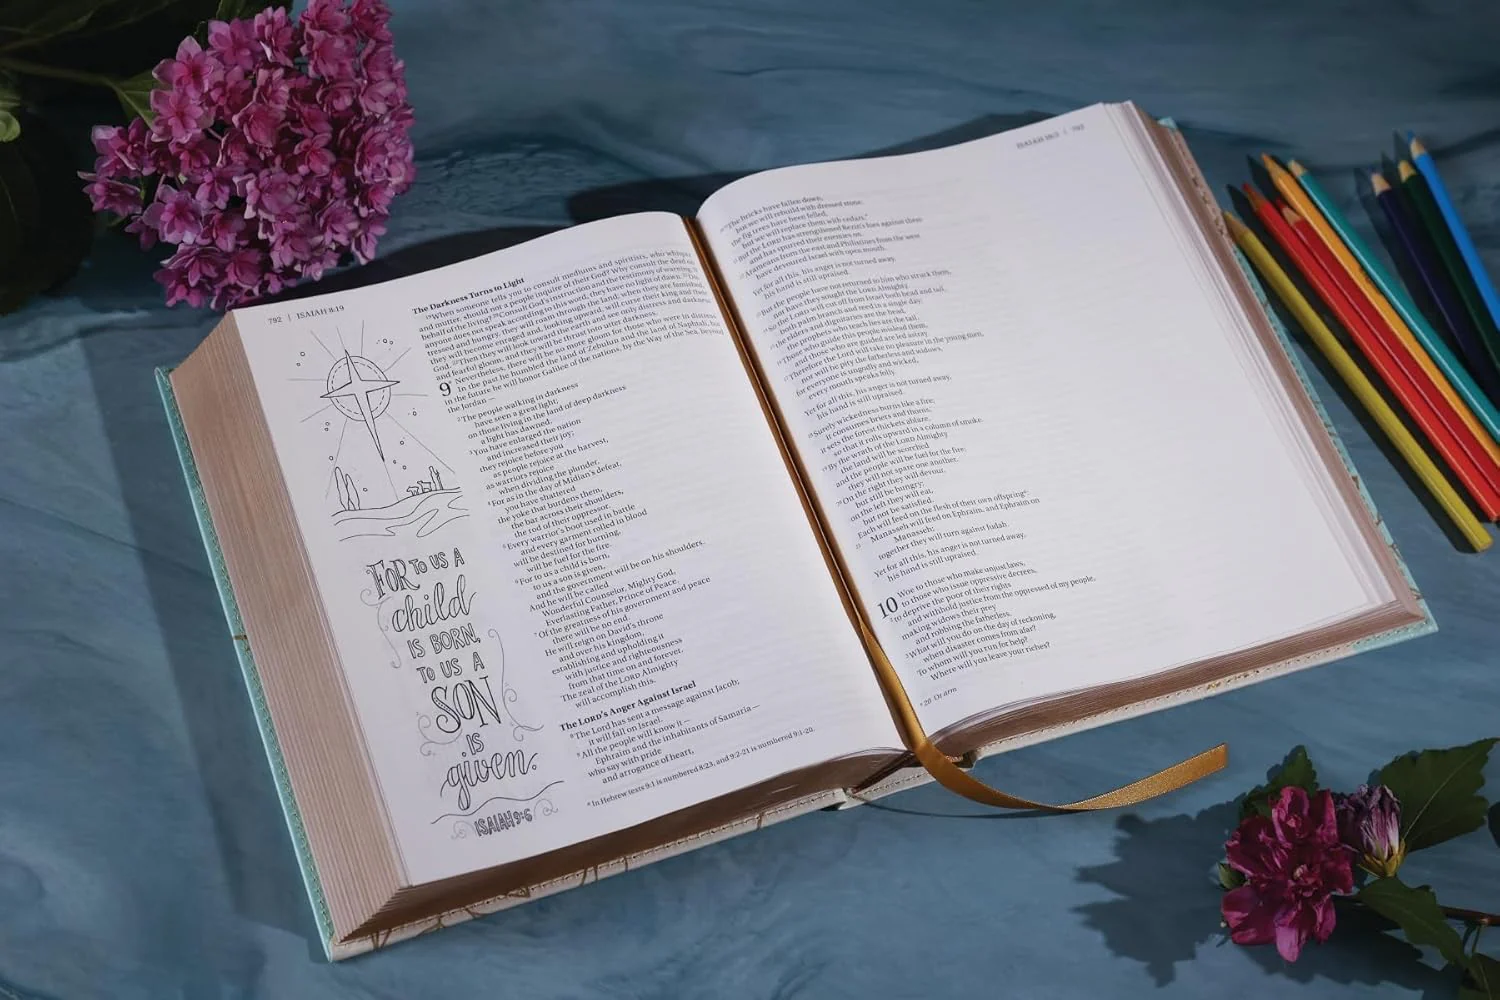 792 | ISAIAH 8:19
The Darkness Turns to Light
¹⁹When someone tells you to consult mediums and spiritists, who whisper
and mutter, should not a people inquire of their God? Why consult the dead on
behalf of the living? ²⁰Consult God's instruction and the testimony of warning. If
anyone does not speak according to this word, they have no light of dawn. ²¹Dis-
tressed and hungry, they will roam through the land; when they are famished,
they will become enraged and, looking upward, will curse their king and their
God. ²²Then they will look toward the earth and see only distress and darkness
and fearful gloom, and they will be thrust into utter darkness.
9 Nevertheless, there will be no more gloom for those who were in distress.
In the past he humbled the land of Zebulun and the land of Naphtali, but
in the future he will honor Galilee of the nations, by the Way of the Sea, beyond
the Jordan —
²The people walking in darkness
have seen a great light;
on those living in the land of deep darkness
a light has dawned.
³You have enlarged the nation
and increased their joy;
they rejoice before you
as people rejoice at the harvest,
as warriors rejoice
when dividing the plunder.
⁴For as in the day of Midian's defeat,
you have shattered
the yoke that burdens them,
the bar across their shoulders,
the rod of their oppressor.
⁵Every warrior's boot used in battle
and every garment rolled in blood
will be destined for burning,
will be fuel for the fire.
⁶For to us a child is born,
to us a son is given,
and the government will be on his shoulders.
And he will be called
Wonderful Counselor, Mighty God,
Everlasting Father, Prince of Peace.
⁷Of the greatness of his government and peace
there will be no end.
He will reign on David's throne
and over his kingdom,
establishing and upholding it
with justice and righteousness
from that time on and forever.
The zeal of the LORD Almighty
will accomplish this.
The LORD's Anger Against Israel
⁸The Lord has sent a message against Jacob;
it will fall on Israel.
⁹All the people will know it —
Ephraim and the inhabitants of Samaria —
who say with pride
and arrogance of heart,
ᵃ In Hebrew texts 9:1 is numbered 8:23, and 9:2-21 is numbered 9:1-20.
FOR TO US A
child
IS BORN,
TO US A
SON
IS
given
ISAIAH 9:6
ISAIAH 10:3 | 793
¹⁰"The bricks have fallen down,
but we will rebuild with dressed stone;
the fig trees have been felled,
but we will replace them with cedars."
¹¹But the LORD has strengthened Rezin's foes against them
and has spurred their enemies on.
¹²Arameans from the east and Philistines from the west
have devoured Israel with open mouth.
Yet for all this, his anger is not turned away,
his hand is still upraised.
¹³But the people have not returned to him who struck them,
nor have they sought the LORD Almighty.
¹⁴So the LORD will cut off from Israel both head and tail,
both palm branch and reed in a single day;
¹⁵the elders and dignitaries are the head,
the prophets who teach lies are the tail.
¹⁶Those who guide this people mislead them,
and those who are guided are led astray.
¹⁷Therefore the Lord will take no pleasure in the young men,
nor will he pity the fatherless and widows,
for everyone is ungodly and wicked,
every mouth speaks folly.
Yet for all this, his anger is not turned away,
his hand is still upraised.
¹⁸Surely wickedness burns like a fire;
it consumes briers and thorns,
it sets the forest thickets ablaze,
so that it rolls upward in a column of smoke.
¹⁹By the wrath of the LORD Almighty
the land will be scorched
and the people will be fuel for the fire;
they will not spare one another.
²⁰On the right they will devour,
but still be hungry;
on the left they will eat,
but not be satisfied.
Each will feed on the flesh of their own offspringᵃ:
²¹ Manasseh will feed on Ephraim, and Ephraim on
Manasseh;
together they will turn against Judah.
Yet for all this, his anger is not turned away,
his hand is still upraised.
10 Woe to those who make unjust laws,
to those who issue oppressive decrees,
²to deprive the poor of their rights
and withhold justice from the oppressed of my people,
making widows their prey
and robbing the fatherless.
³What will you do on the day of reckoning,
when disaster comes from afar?
To whom will you run for help?
Where will you leave your riches?
ᵃ 20 Or arm